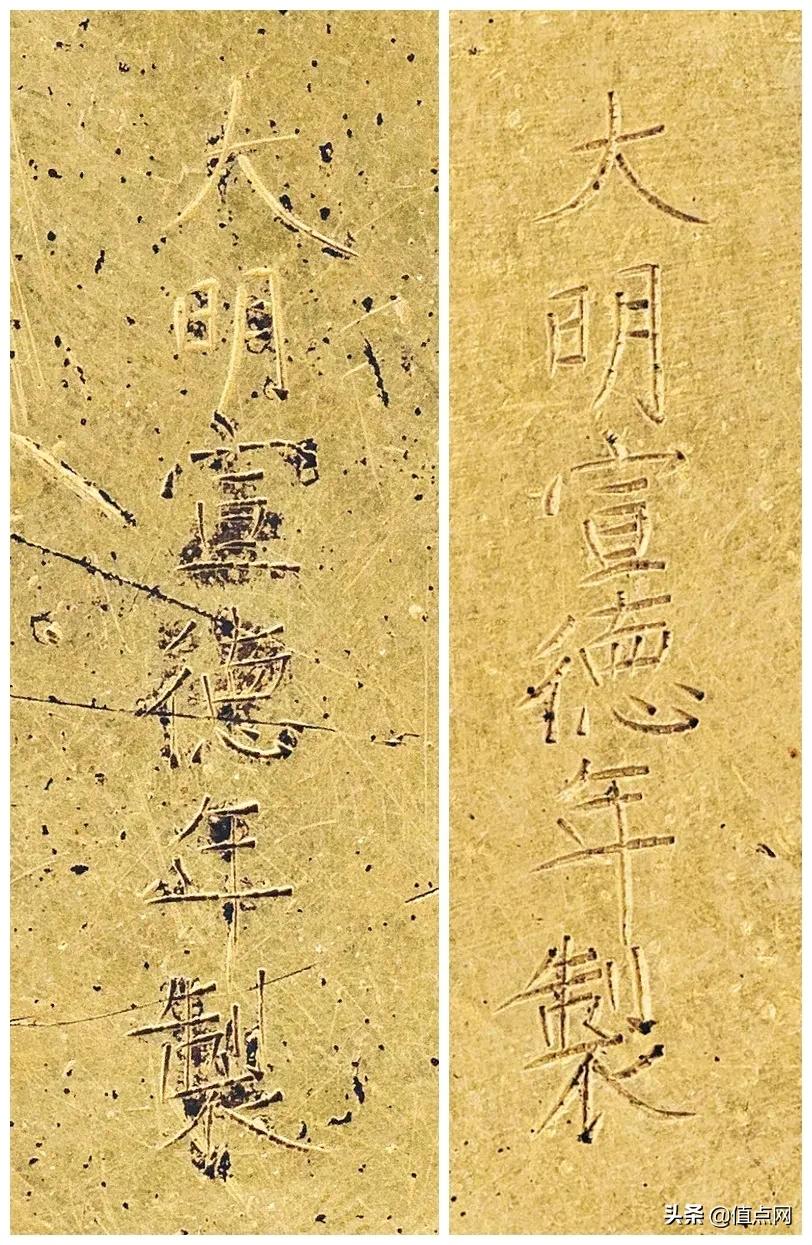 大明宣德年製
大明宣德年製
头条 @值点网